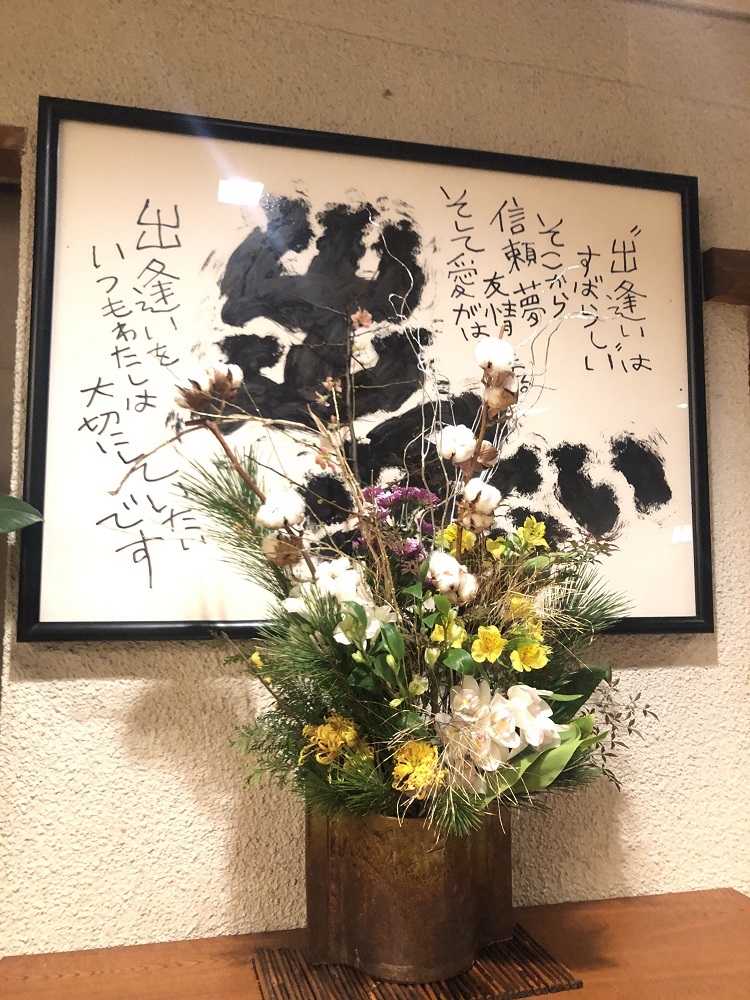 〝出逢いは
すばらしい〟
そこから
信頼 夢
友情
そして愛がは
出逢い
出逢いを
いつもわたしは
大切にしていたい
です